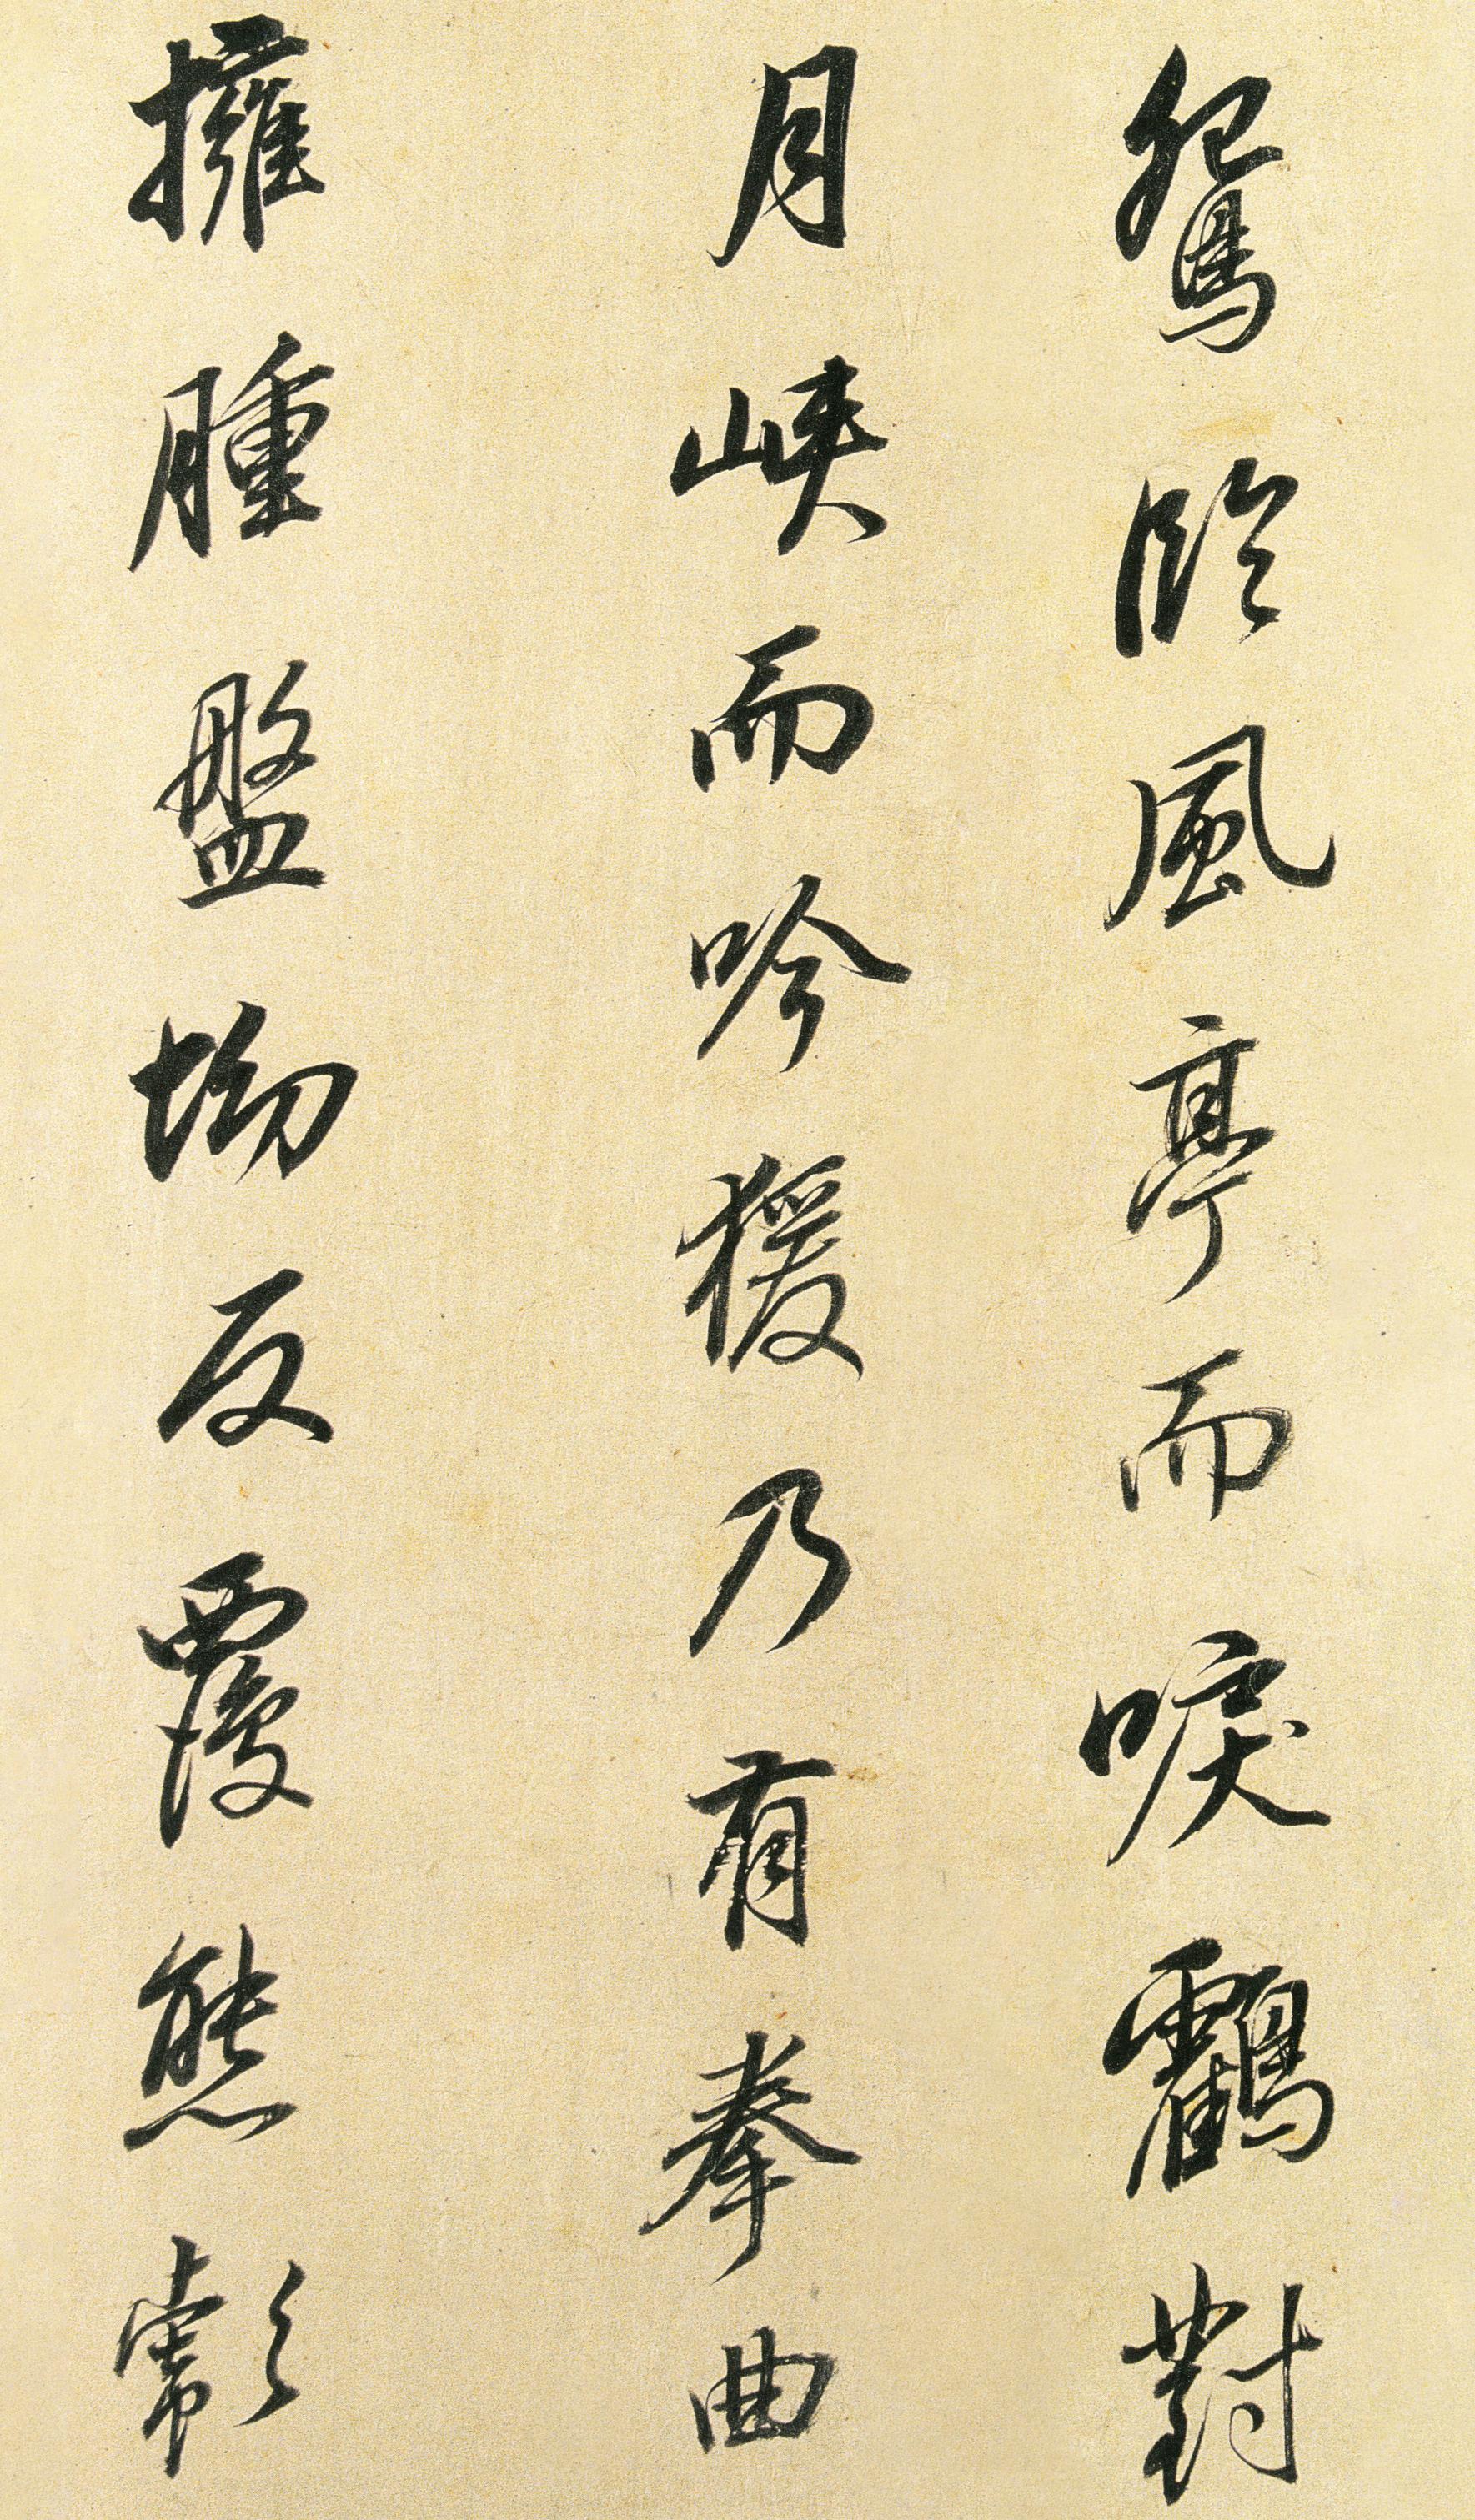 鴛臨風亭而唳鶴對
月峽而吟猨乃有拳曲
擁腫盤坳反覆熊彪